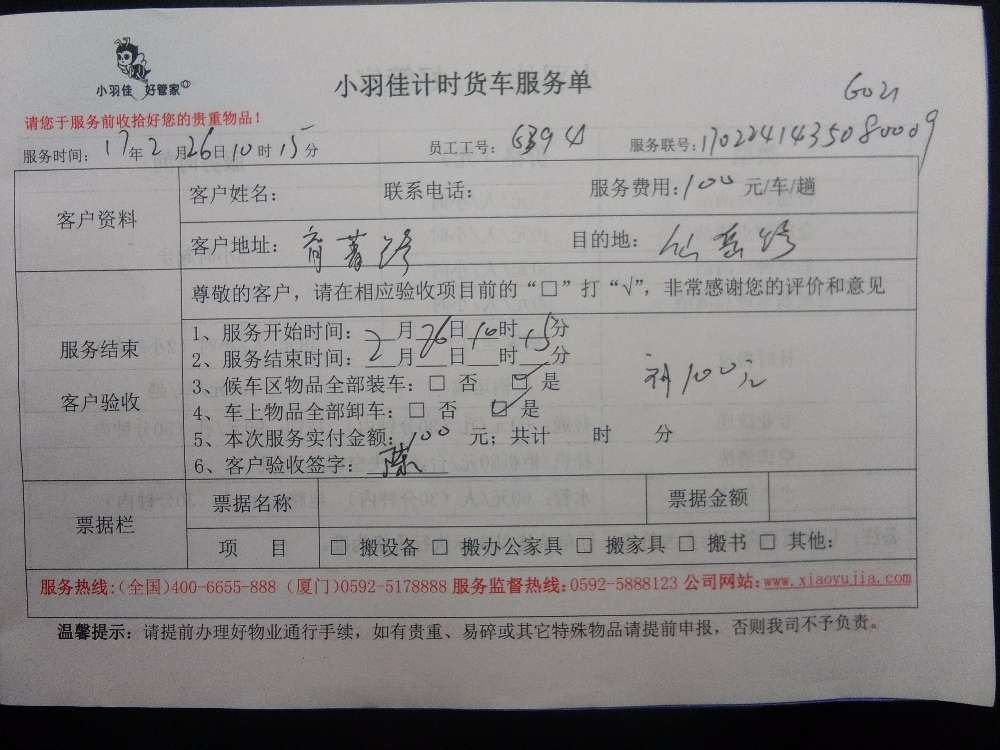 小羽佳 好管家
小羽佳计时货车服务单
G021
请您于服务前收拾好您的贵重物品！
服务时间：17年2月26日10时15分 员工工号： 服务联号：1702241435080009
客户资料
客户姓名： 联系电话： 服务费用：100元/车/趟
客户地址：育菁路 目的地：仙岳路
尊敬的客户，请在相应验收项目前的“□”打“√”，非常感谢您的评价和意见
服务结束
客户验收
1、服务开始时间：2月26日10时15分
2、服务结束时间：2月__日__时__分
3、候车区物品全部装车：□ 否 ☑ 是
4、车上物品全部卸车：□ 否 ☑ 是
补100元
5、本次服务实付金额：100 元；共计 时 分
6、客户验收签字：陈
票据栏
票据名称 票据金额
项 目 □ 搬设备 □ 搬办公家具 □ 搬家具 □ 搬书 □ 其他：
服务热线：(全国)400-6655-888 (厦门)0592-5178888 服务监督热线：0592-5888123 公司网站：www.xiaoyujia.com
温馨提示：请提前办理好物业通行手续，如有贵重、易碎或其它特殊物品请提前申报，否则我司不予负责。